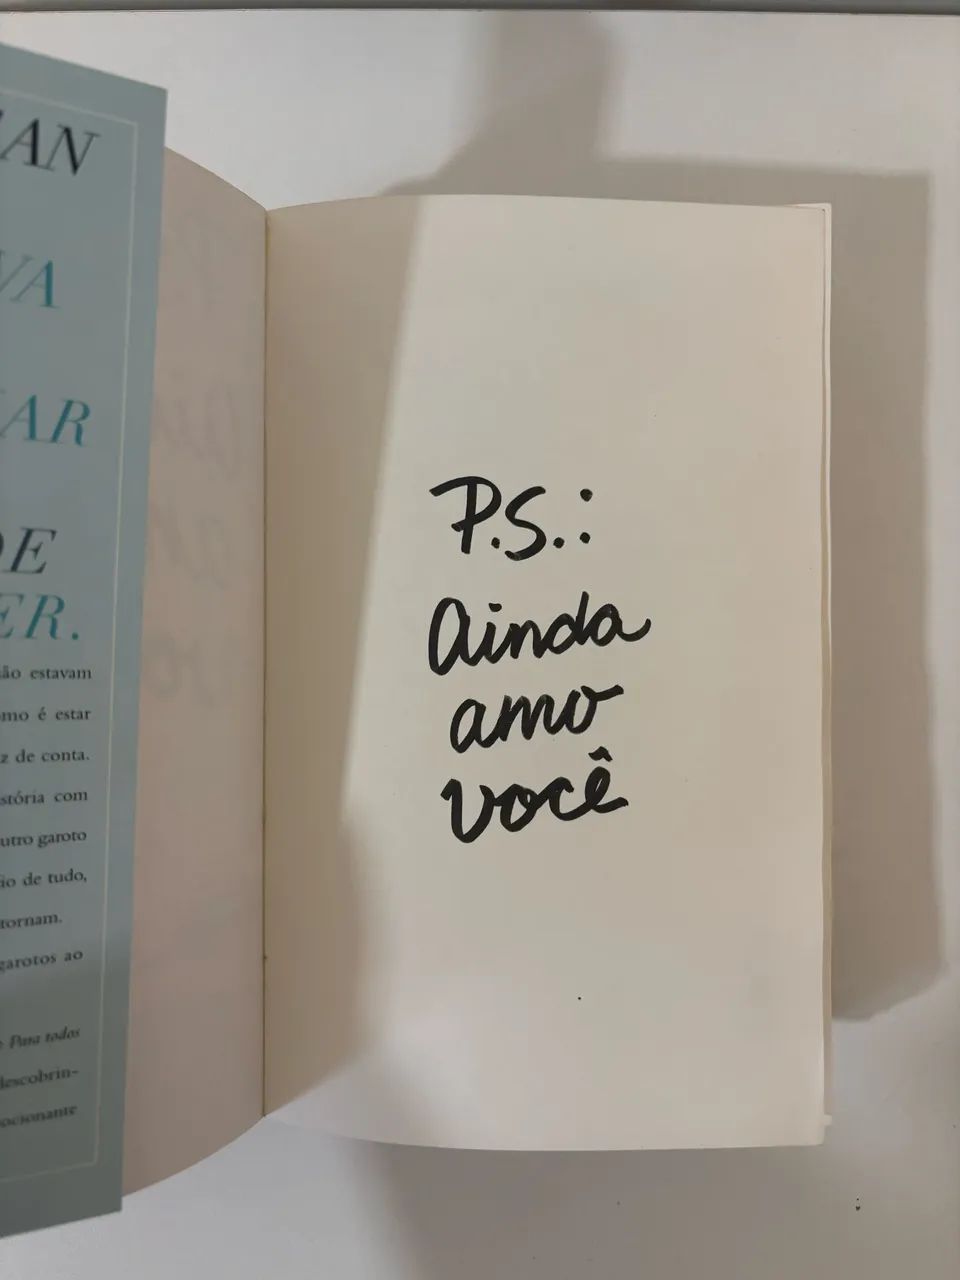 VA
DE
ão estavam
omo é estar
z de conta.
stória com
utro garoto
io de tudo,
tornam.
garotos ao
Para todos
descobrin-
ocionante
P.S.:
Ainda
amo
você